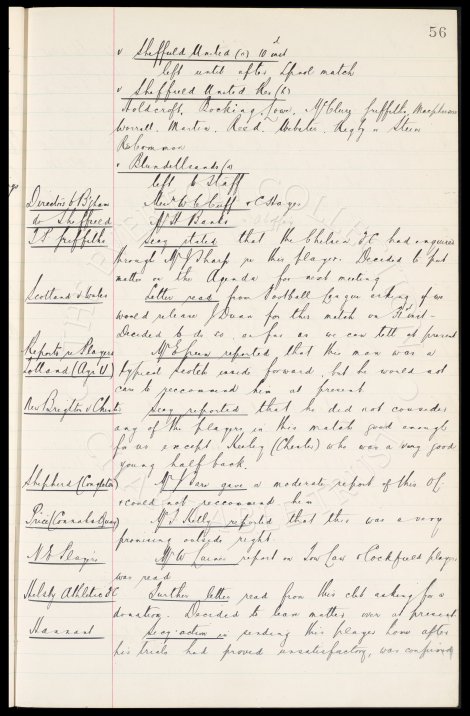 56
v Sheffield United (a) 10th inst
left until after Lpool match
v Sheffield United Res (h)
Holdcroft. Bocking. Lowe. McClure Griffiths, Macpherson
Worrall. Martin. Reed. Webster. Rigby or Stein
R. Common
v Blundellsands (a)
left to Staff
Directors to B'ham Mr W C Cuff & C Hayes
to Sheffield Mr H Banks
T.P. Griffiths Secy stated that the Chelsea F.C had enquired
through Mr J Sharp re this player. Decided to put
matter on the Agenda for next meeting
Scotland v Wales Letter read from Football League asking if we
would release J Dunn for this match on inst -
Decided to do so as far as we can tell at present
Reports re Players Mr E Green reported that this man was a
Lolland (Ayr U) typical Scotch inside forward. but he would not
care to reccommend him at present
New Brighton v Chester Secy reported that he did not consider
any of the players in this match good enough
for us except Keeley (Chester) who was a very good
young half back.
Shepherd (Congleton) Mr J Fare gave a moderate report of this OL
& could not reccommend him
Price (Connahs Quay) Mr T Kelly reported that this was a very
promising outside right
N.E. Players Mr W report on Tow Law & Cockfield players
was read
Helsby Athletic FC Further letter read from this club asking for a
donation. Decided to leave matter over at present.
Hannant Secy action in sending this player home after
his trials had proved unsatisfactory, was confirmed